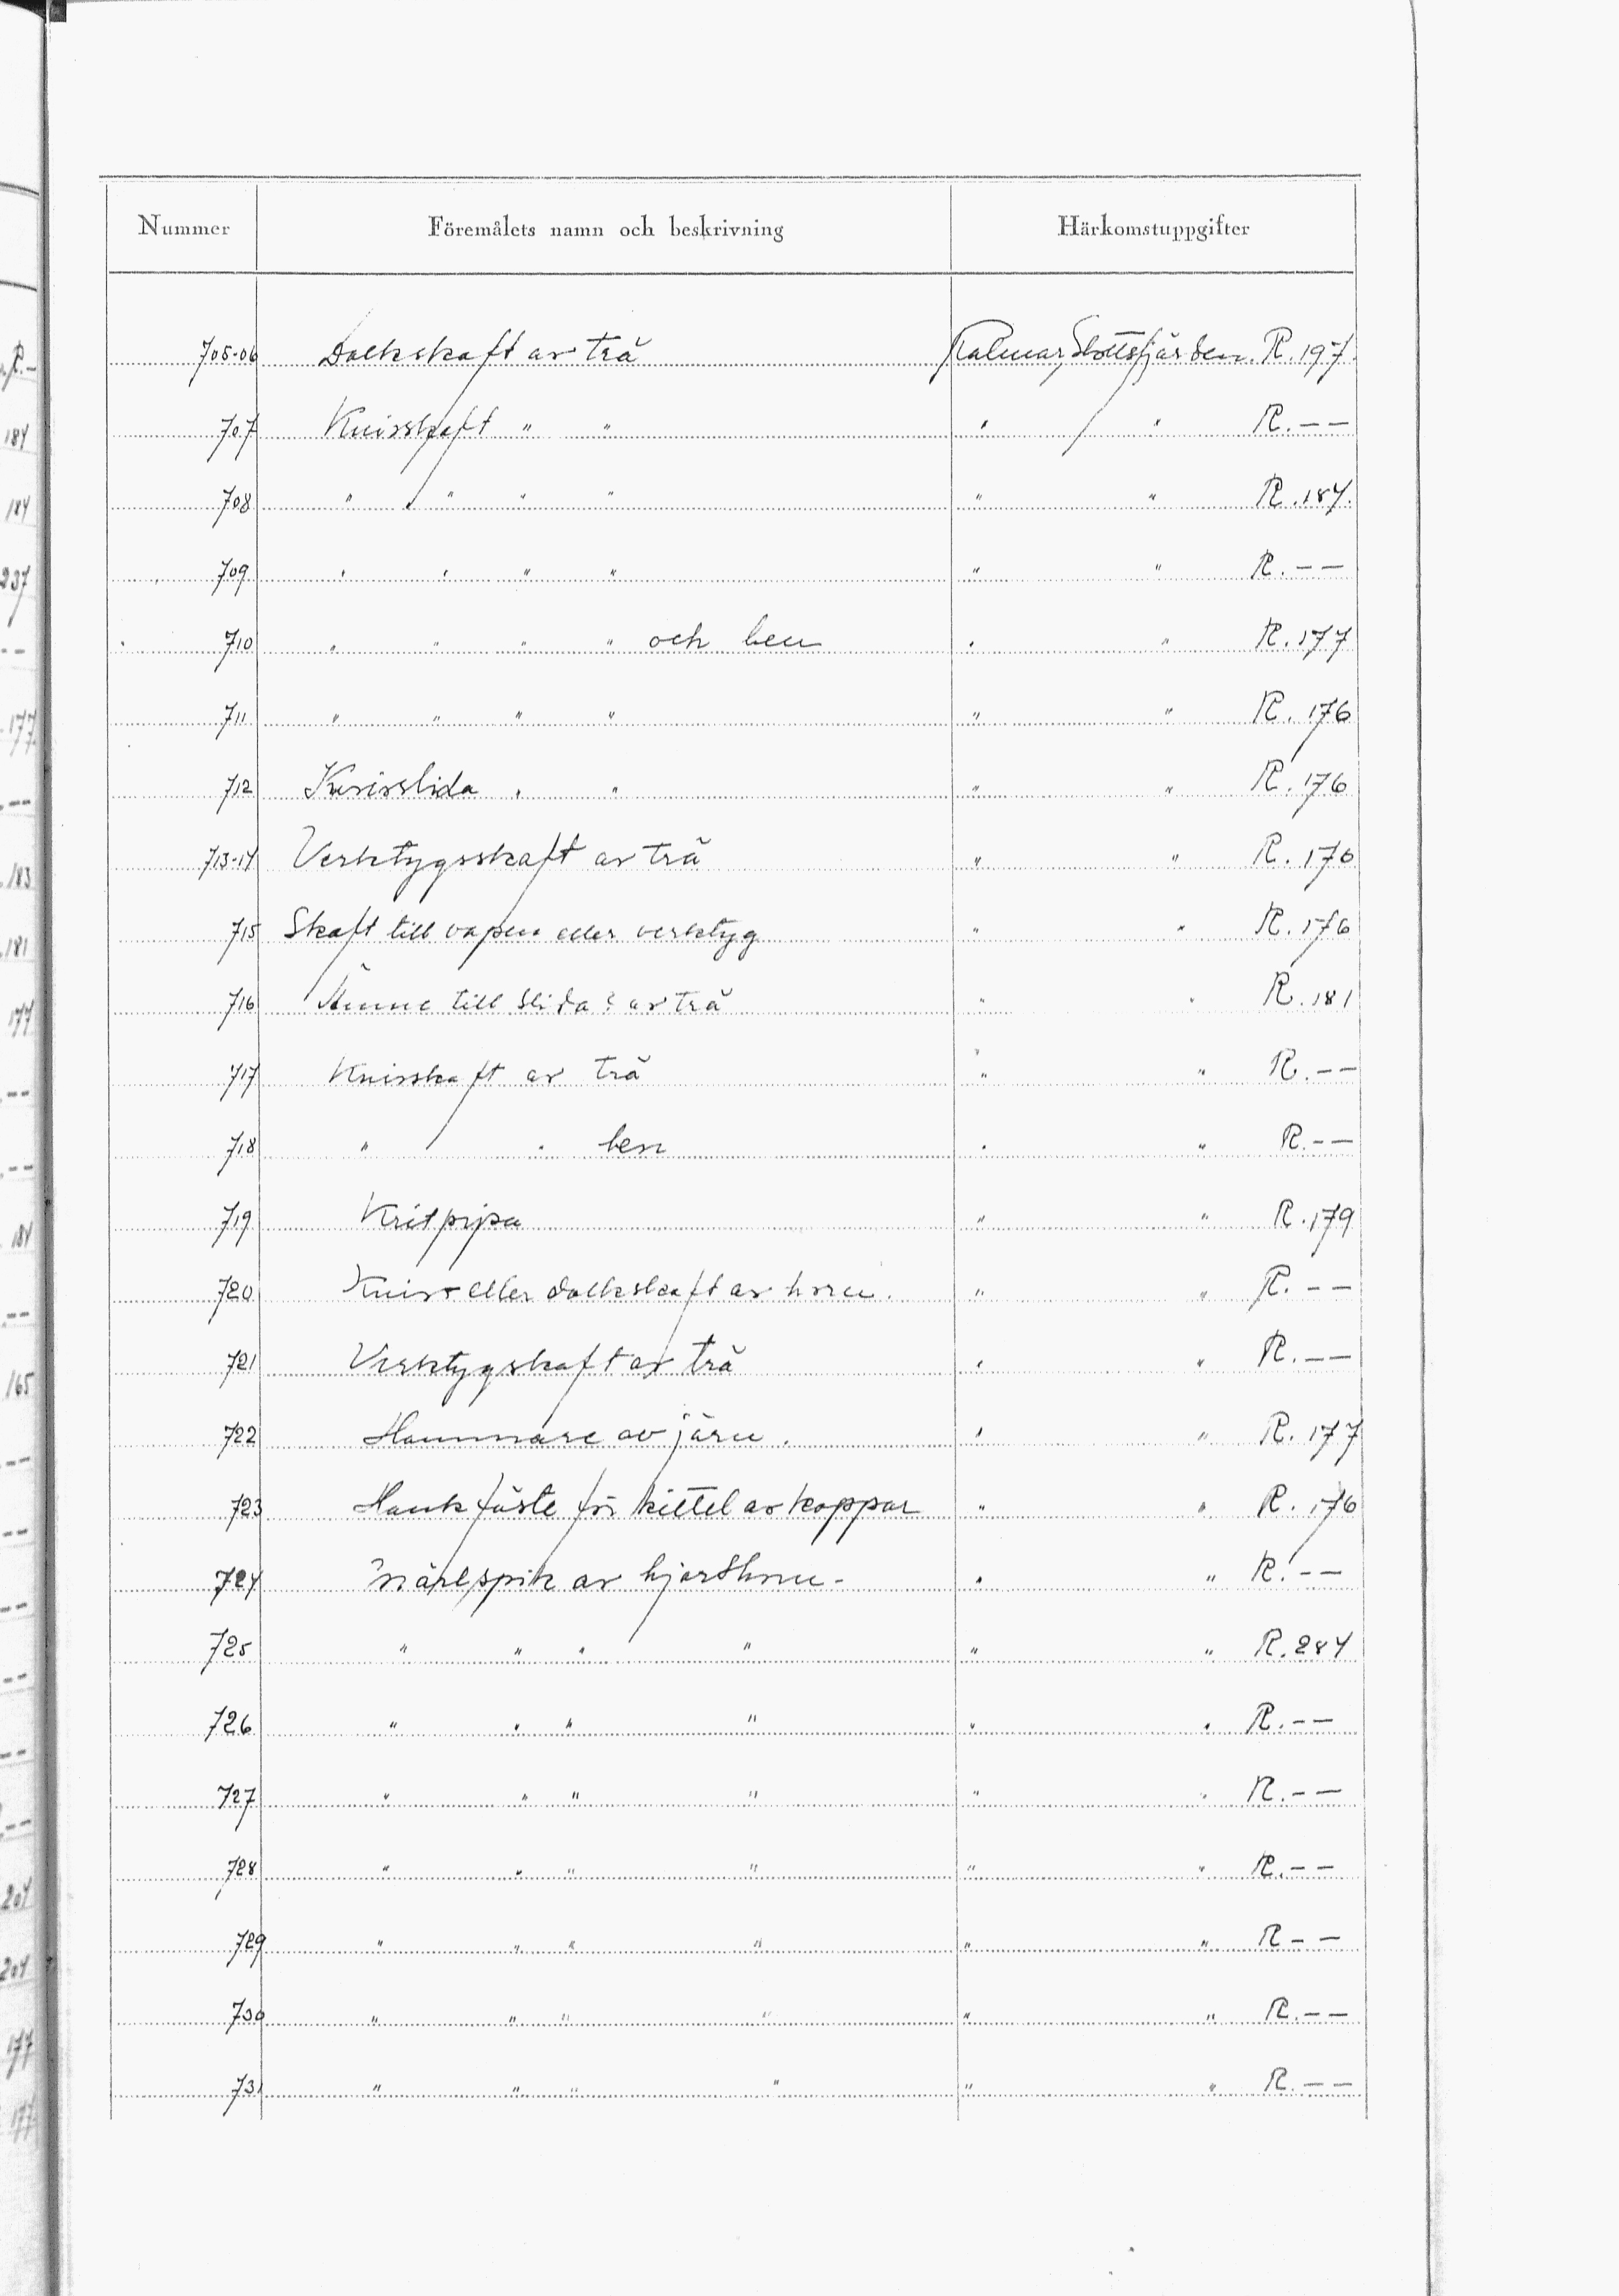 Nummer Föremålets namn och beskrivning Härkomstuppgifter
705-06 Dolkskaft av trä Kalmar, Slottsfjärden. R. 197.
707 Knivskaft " " " " R. --
708 " " " " " " R. 184.
709 " " " " " " R. --
710 " " " " och ben " " R. 177
711 " " " " " " R. 176
712 Knivslida " " " " R. 176
713-14 Verktygsskaft av trä " " R. 176
715 Skaft till vapen eller verktyg " " R. 176
716 Ämne till slida? av trä " " R. 181
717 Knivskaft av trä " " R. --
718 " " ben " " R. --
719 Kritpipa " " R. 179
720 Kniv- eller dolkskaft av horn. " " R. --
721 Verktygskaft av trä " " R. --
722 Hammare av järn. " " R. 177
723 Hankfäste för kittel av koppar " " R. 176
724 Märlspik av hjorthorn- " " R. --
725 " " " " " " R. 284
726 " " " " " " R. --
727 " " " " " " R. --
728 " " " " " " R. --
729 " " " " " " R --
730 " " " " " " R. --
731 " " " " " " R. --
R.-
184
184
237
--
177
--
183
181
177
--
--
184
--
165
--
--
--
--
--
--
204
204
177
177